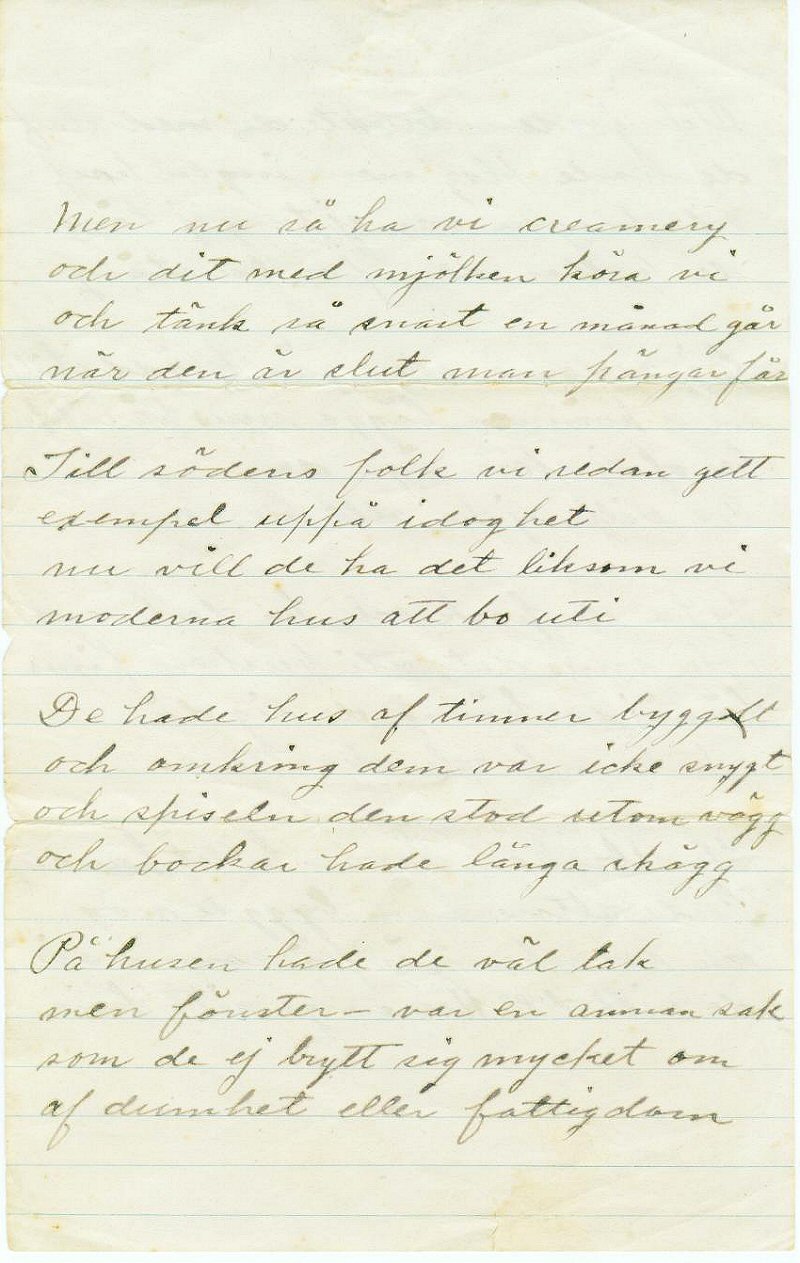 Men nu så ha vi creamery
och dit med mjölken köra vi
och tänk så snart en månad går
när den är slut man pängar får
Till söderns folk vi redan gett
exempel uppå idoghet
nu vill de ha det liksom vi
moderna hus att bo uti
De hade hus af timmer byggdt
och omkring dem var icke snygt
och spiseln den stod utom vägg
och bockar hade långa skägg
På husen hade de väl tak
men fönster – var en annan sak
som de ej brytt sig mycket om
af dumhet eller fattigdom